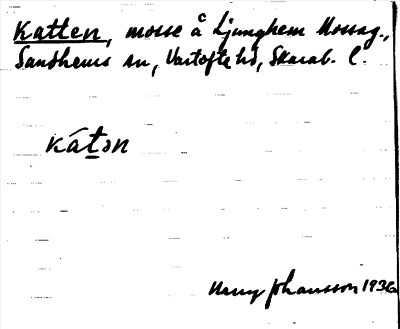 Katten, mosse å Ljunghem Mossag.,
Sandhems sn, Vartofta hd, Skarab. l.
kátən
Harry Johansson 1936